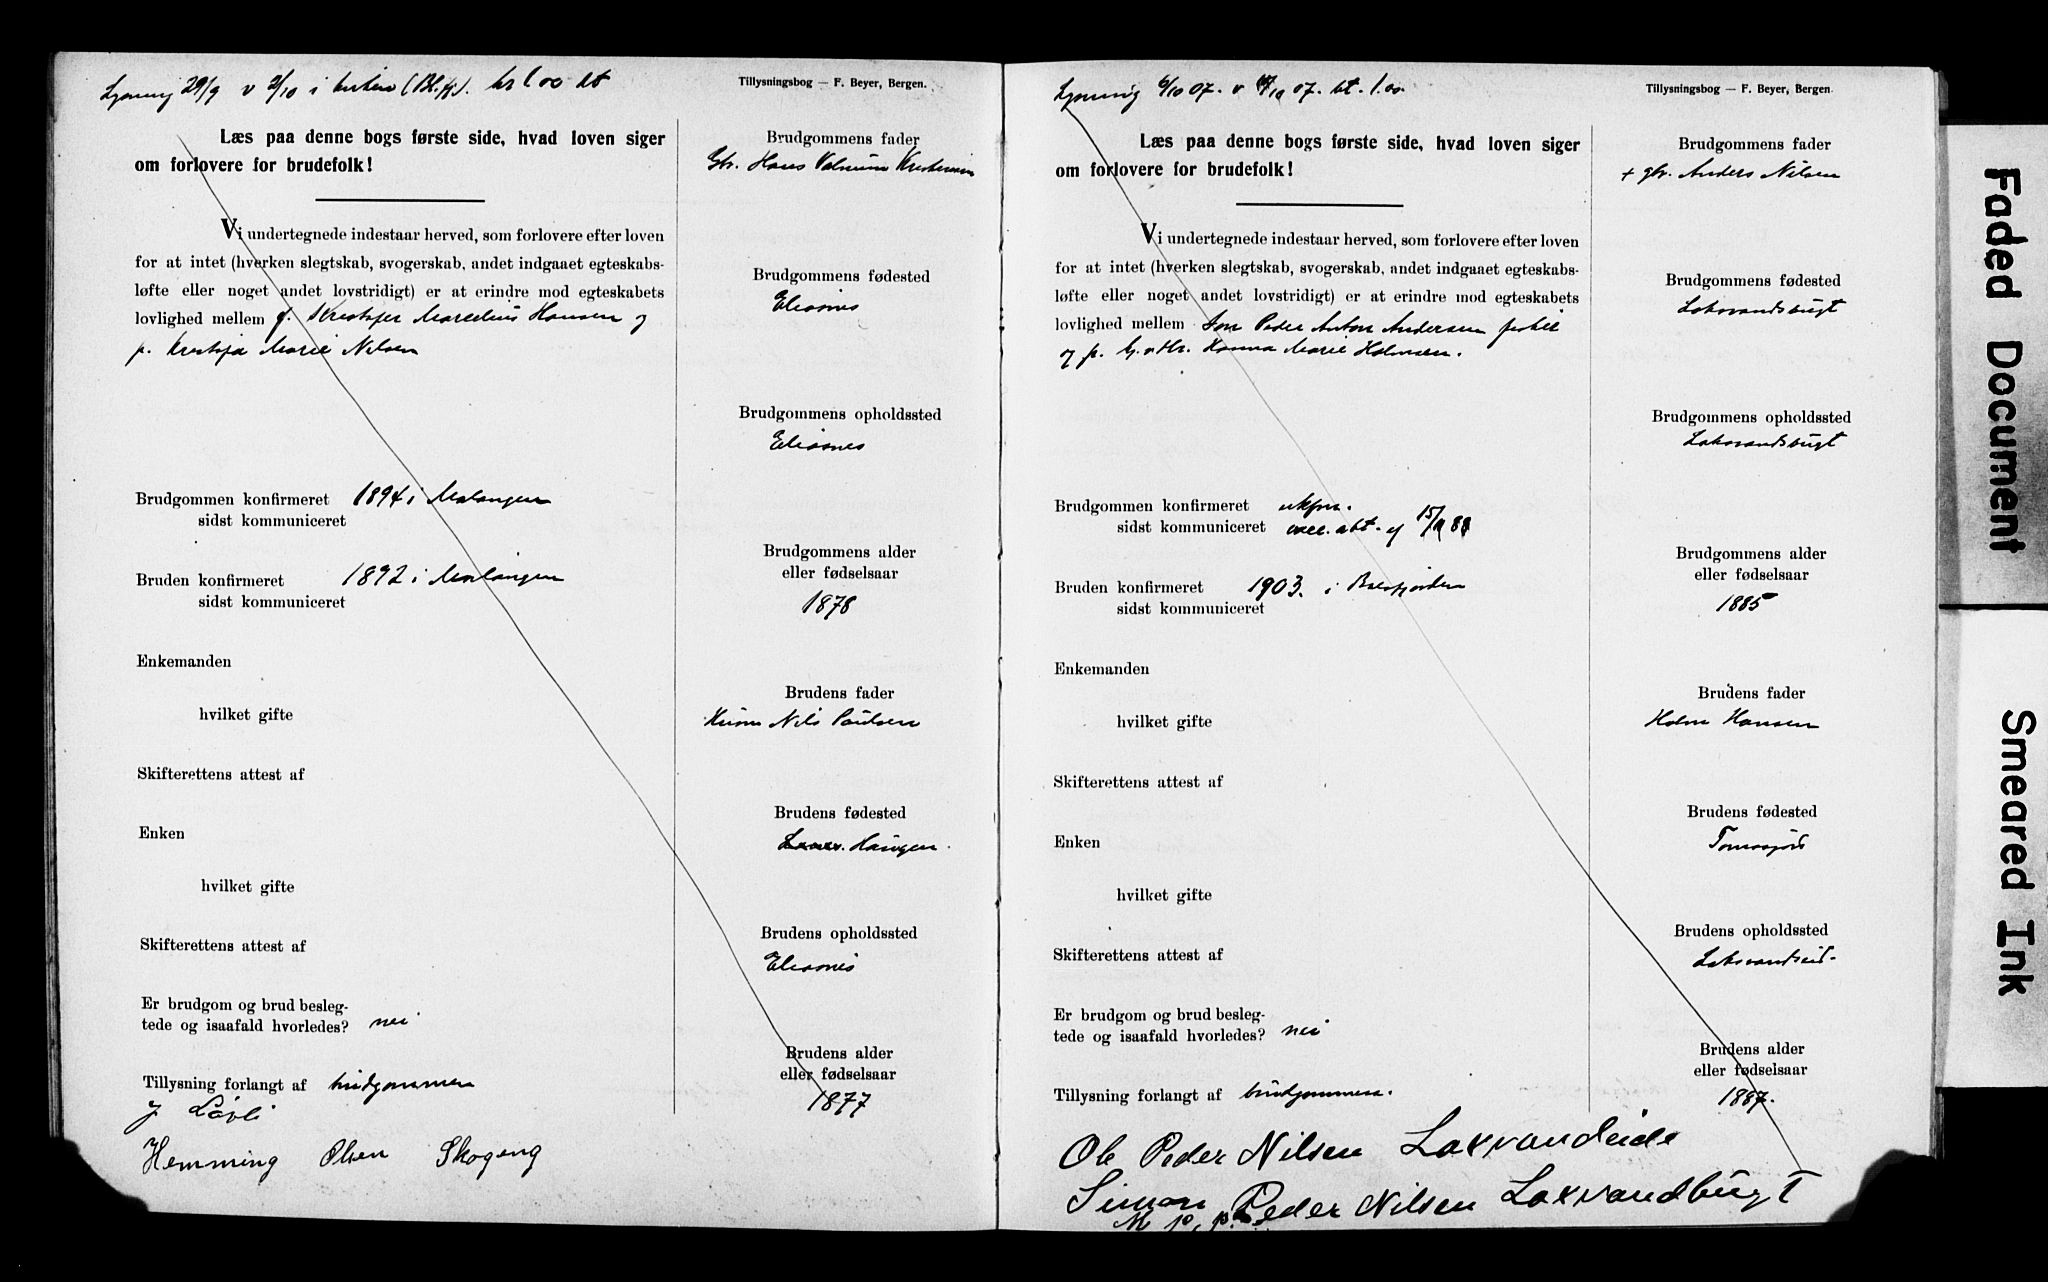 Lysning 29/9 v 9/10 i kirken (Bl.fj). kr 1 00 bt
Tillysningsbog — F. Beyer, Bergen.
Læs paa denne bogs første side, hvad loven siger
om forlovere for brudefolk!
Vi undertegnede indestaar herved, som forlovere efter loven
for at intet (hverken slegtskab, svogerskab, andet indgaaet egteskabs-
løfte eller noget andet lovstridigt) er at erindre mod egteskabets
lovlighed mellem Kristofer Marelius Hansen og
p. Kristofa Marie Nilsen
Brudgommen konfirmeret 1894 i Malangen
sidst kommuniceret
Bruden konfirmeret 1892 i Malangen
sidst kommuniceret
Enkemanden
hvilket gifte
Skifterettens attest af
Enken
hvilket gifte
Skifterettens attest af
Er brudgom og brud besleg-
tede og isaafald hvorledes? nei
Tillysning forlangt af brudgommen
J Løvli
Hemming Olsen Skogeng
Brudgommens fader
Gbr. Hans Kristensen
Brudgommens fødested
Elisnes
Brudgommens opholdssted
Elisnes
Brudgommens alder
eller fødselsaar
1878
Brudens fader
Nils Paulsen
Brudens fødested
Haugen.
Brudens opholdssted
Elisnes
Brudens alder
eller fødselsaar
1877
Lysning 6/10 07. v /10 07. bt. 1.00
Tillysningsbog — F. Beyer, Bergen.
Læs paa denne bogs første side, hvad loven siger
om forlovere for brudefolk!
Vi undertegnede indestaar herved, som forlovere efter loven
for at intet (hverken slegtskab, svogerskab, andet indgaaet egteskabs-
løfte eller noget andet lovstridigt) er at erindre mod egteskabets
lovlighed mellem Peder Anton Andersen
og p. Hanna Marie Holmsen.
Brudgommen konfirmeret ukfm.
sidst kommuniceret
Bruden konfirmeret 1903. i Balsfjorden
sidst kommuniceret
Enkemanden
hvilket gifte
Skifterettens attest af
Enken
hvilket gifte
Skifterettens attest af
Er brudgom og brud besleg-
tede og isaafald hvorledes? nei
Tillysning forlangt af brudgommen.
Ole Peder Nilsen Laxvandeide
Simon Peder Nilsen Laxvandbugt
M. p. p.
Brudgommens fader
+ gbr. Anders Nilsen
Brudgommens fødested
Laksvandsbugt
Brudgommens opholdssted
Laksvandsbugt
Brudgommens alder
eller fødselsaar
1885
Brudens fader
Holm Hansen
Brudens fødested
Brudens opholdssted
Laksvandseid.
Brudens alder
eller fødselsaar
1887.
Faded Document
Smeared Ink